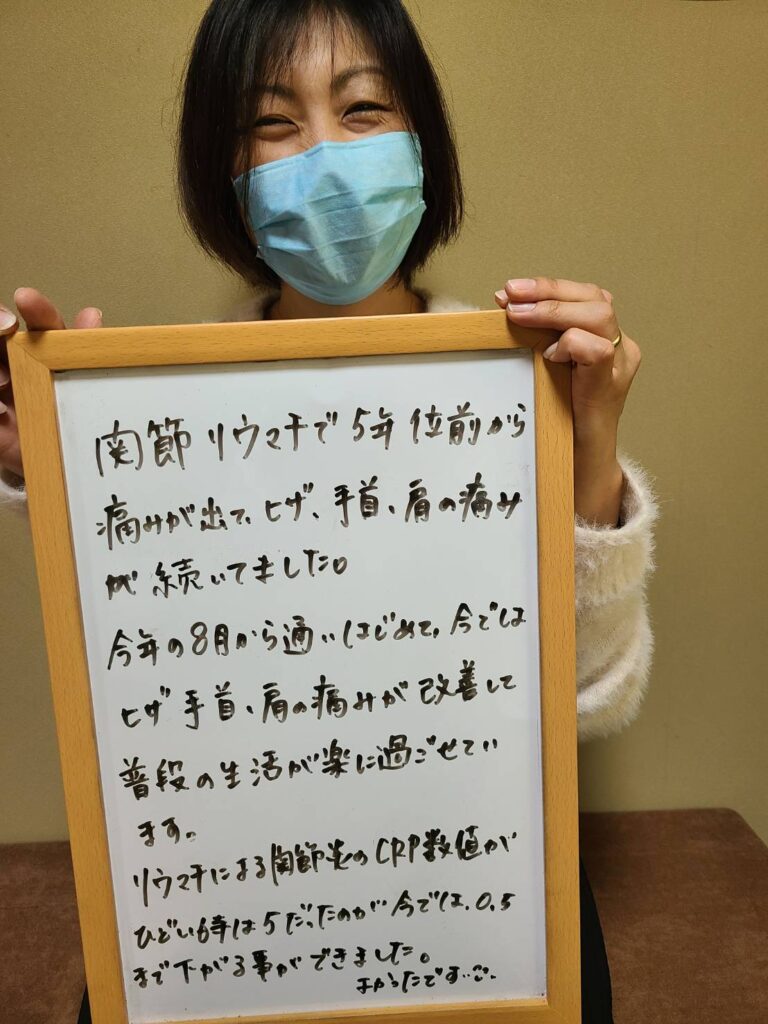 関節リウマチで5年位前から
痛みが出て、ヒザ、手首、肩の痛み
が続いてました。
今年の8月から通いはじめて、今では
ヒザ手首、肩の痛みが改善して
普段の生活が楽に過ごせてい
ます。
リウマチによる関節炎のCRP数値が
ひどい時は5だったのが今では、0.5
まで下がる事ができました。
よかったです